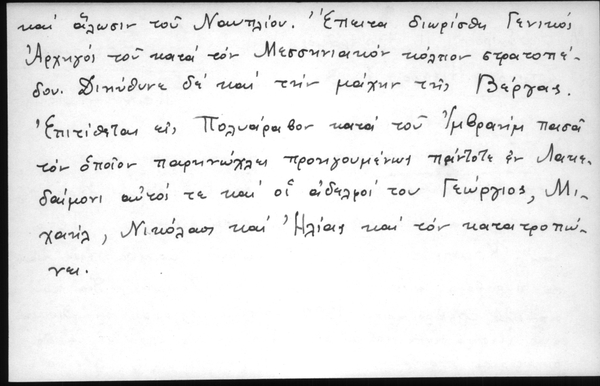 καί ἅλωσιν τοῦ Ναυπλίου. Ἔπειτα διωρίσθη Γενικός
Ἀρχηγός τοῦ κατά τόν Μεσσηνιακόν κόλπον στρατοπέ-
δου. Διηύθυνε δέ καί τήν μάχην τῆς Βέργας.
Ἐπιτίθεται εἰς Πολυάραβον κατά τοῦ Ἰμβραήμ πασᾶ
τόν ὁποῖον παρηνώχλει προηγουμένως πάντοτε ἐν Λακε-
δαίμονι αὐτός τε καί οἱ ἀδελφοί του Γεώργιος, Μι-
χαήλ, Νικόλαος καί Ἠλίας καί τόν κατατροπώ-
νει.